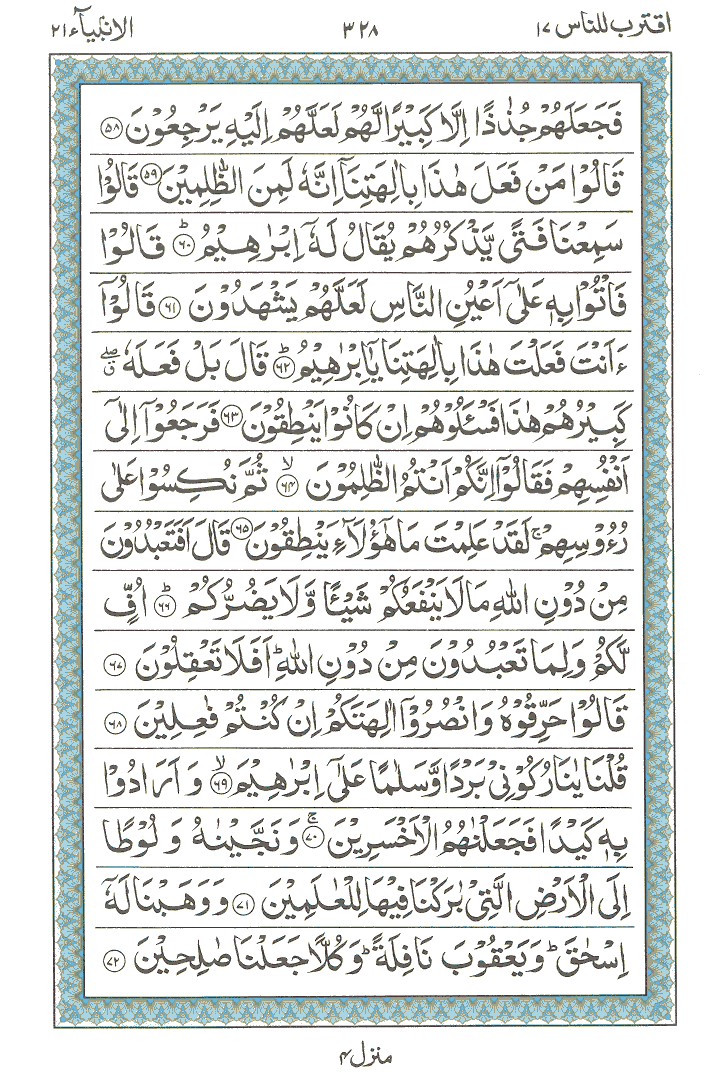 اقترب للناس ١٧
٣٢٨
الانبيآء ٢١
فَجَعَلَهُمْ جُذٰذًا اِلَّا كَبِيْرًا لَّهُمْ لَعَلَّهُمْ اِلَيْهِ يَرْجِعُوْنَ ﴿۵۸﴾
قَالُوْا مَنْ فَعَلَ هٰذَا بِاٰلِهَتِنَاۤ اِنَّهٗ لَمِنَ الظّٰلِمِيْنَ ﴿۵۹﴾ قَالُوْا
سَمِعْنَا فَتًى يَّذْكُرُهُمْ يُقَالُ لَهٗۤ اِبْرٰهِيْمُ ؕ﴿۶۰﴾ قَالُوْا
فَاْتُوْا بِهٖ عَلٰۤى اَعْيُنِ النَّاسِ لَعَلَّهُمْ يَشْهَدُوْنَ ﴿۶۱﴾ قَالُوْۤا
ءَاَنْتَ فَعَلْتَ هٰذَا بِاٰلِهَتِنَا يٰۤاِبْرٰهِيْمُ ؕ﴿۶۲﴾ قَالَ بَلْ فَعَلَهٗ ۖق
كَبِيْرُهُمْ هٰذَا فَسْـَٔلُوْهُمْ اِنْ كَانُوْا يَنْطِقُوْنَ ﴿۶۳﴾ فَرَجَعُوْۤا اِلٰۤى
اَنْفُسِهِمْ فَقَالُوْۤا اِنَّكُمْ اَنْتُمُ الظّٰلِمُوْنَ ۙ﴿۶۴﴾ ثُمَّ نُكِسُوْا عَلٰى
رُءُوْسِهِمْ ۚ لَقَدْ عَلِمْتَ مَا هٰۤؤُلَآءِ يَنْطِقُوْنَ ﴿۶۵﴾ قَالَ اَفَتَعْبُدُوْنَ
مِنْ دُوْنِ اللّٰهِ مَا لَا يَنْفَعُكُمْ شَيْـًٔا وَّلَا يَضُرُّكُمْ ؕ﴿۶۶﴾ اُفٍّ
لَّكُمْ وَلِمَا تَعْبُدُوْنَ مِنْ دُوْنِ اللّٰهِ ؕ اَفَلَا تَعْقِلُوْنَ ﴿۶۷﴾
قَالُوْا حَرِّقُوْهُ وَانْصُرُوْۤا اٰلِهَتَكُمْ اِنْ كُنْتُمْ فٰعِلِيْنَ ﴿۶۸﴾
قُلْنَا يٰنَارُ كُوْنِيْ بَرْدًا وَّسَلٰمًا عَلٰۤى اِبْرٰهِيْمَ ۙ﴿۶۹﴾ وَاَرَادُوْا
بِهٖ كَيْدًا فَجَعَلْنٰهُمُ الْاَخْسَرِيْنَ ۚ﴿۷۰﴾ وَنَجَّيْنٰهُ وَلُوْطًا
اِلَى الْاَرْضِ الَّتِيْ بٰرَكْنَا فِيْهَا لِلْعٰلَمِيْنَ ﴿۷۱﴾ وَوَهَبْنَا لَهٗۤ
اِسْحٰقَ ؕ وَيَعْقُوْبَ نَافِلَةً ؕ وَكُلًّا جَعَلْنَا صٰلِحِيْنَ ﴿۷۲﴾
منزل ۴